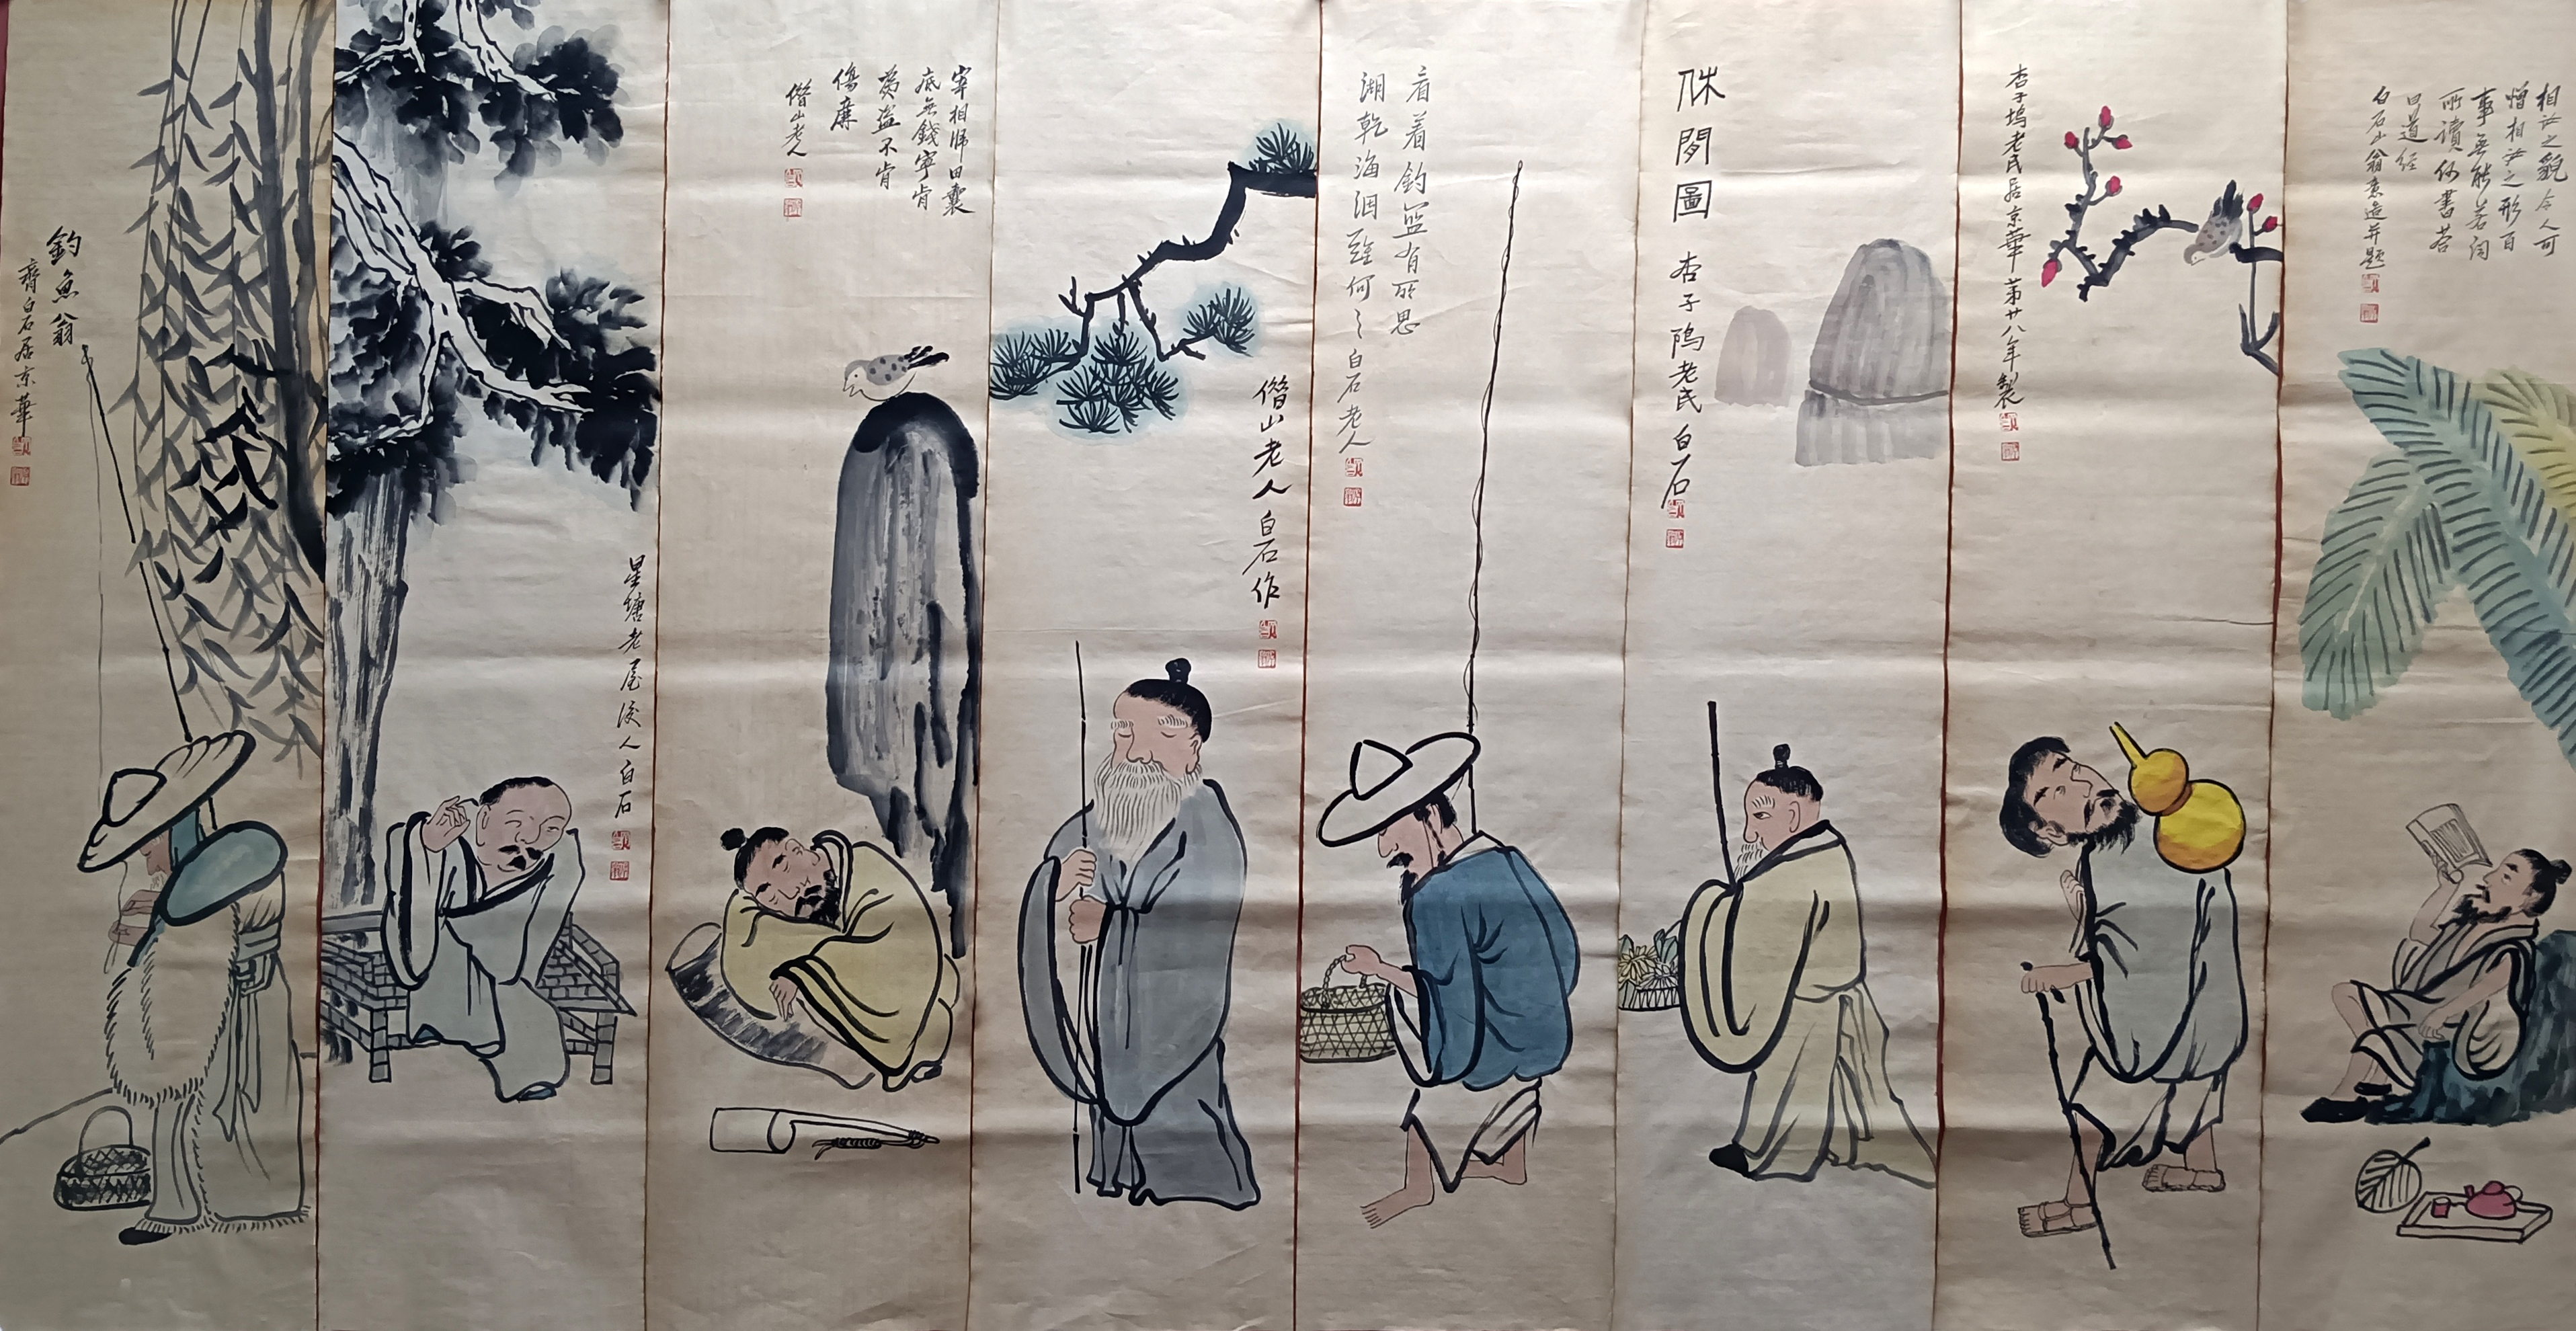 相汝之貌令人可
憎相汝之形百
事無能若问
所讀何書荅
曰道经
白石山翁意造并题
杏子塢老民居京華第廿八年製
休閒圖 杏子隖老民白石
看着釣籃有所思
湖乾海涸雖何之白石老人
僭山老人白石作
宰相歸田囊
底無錢寧肯
為盜不肯
傷廉
僭山老人
星塘老屋後人白石
釣魚翁
齊白石居京華